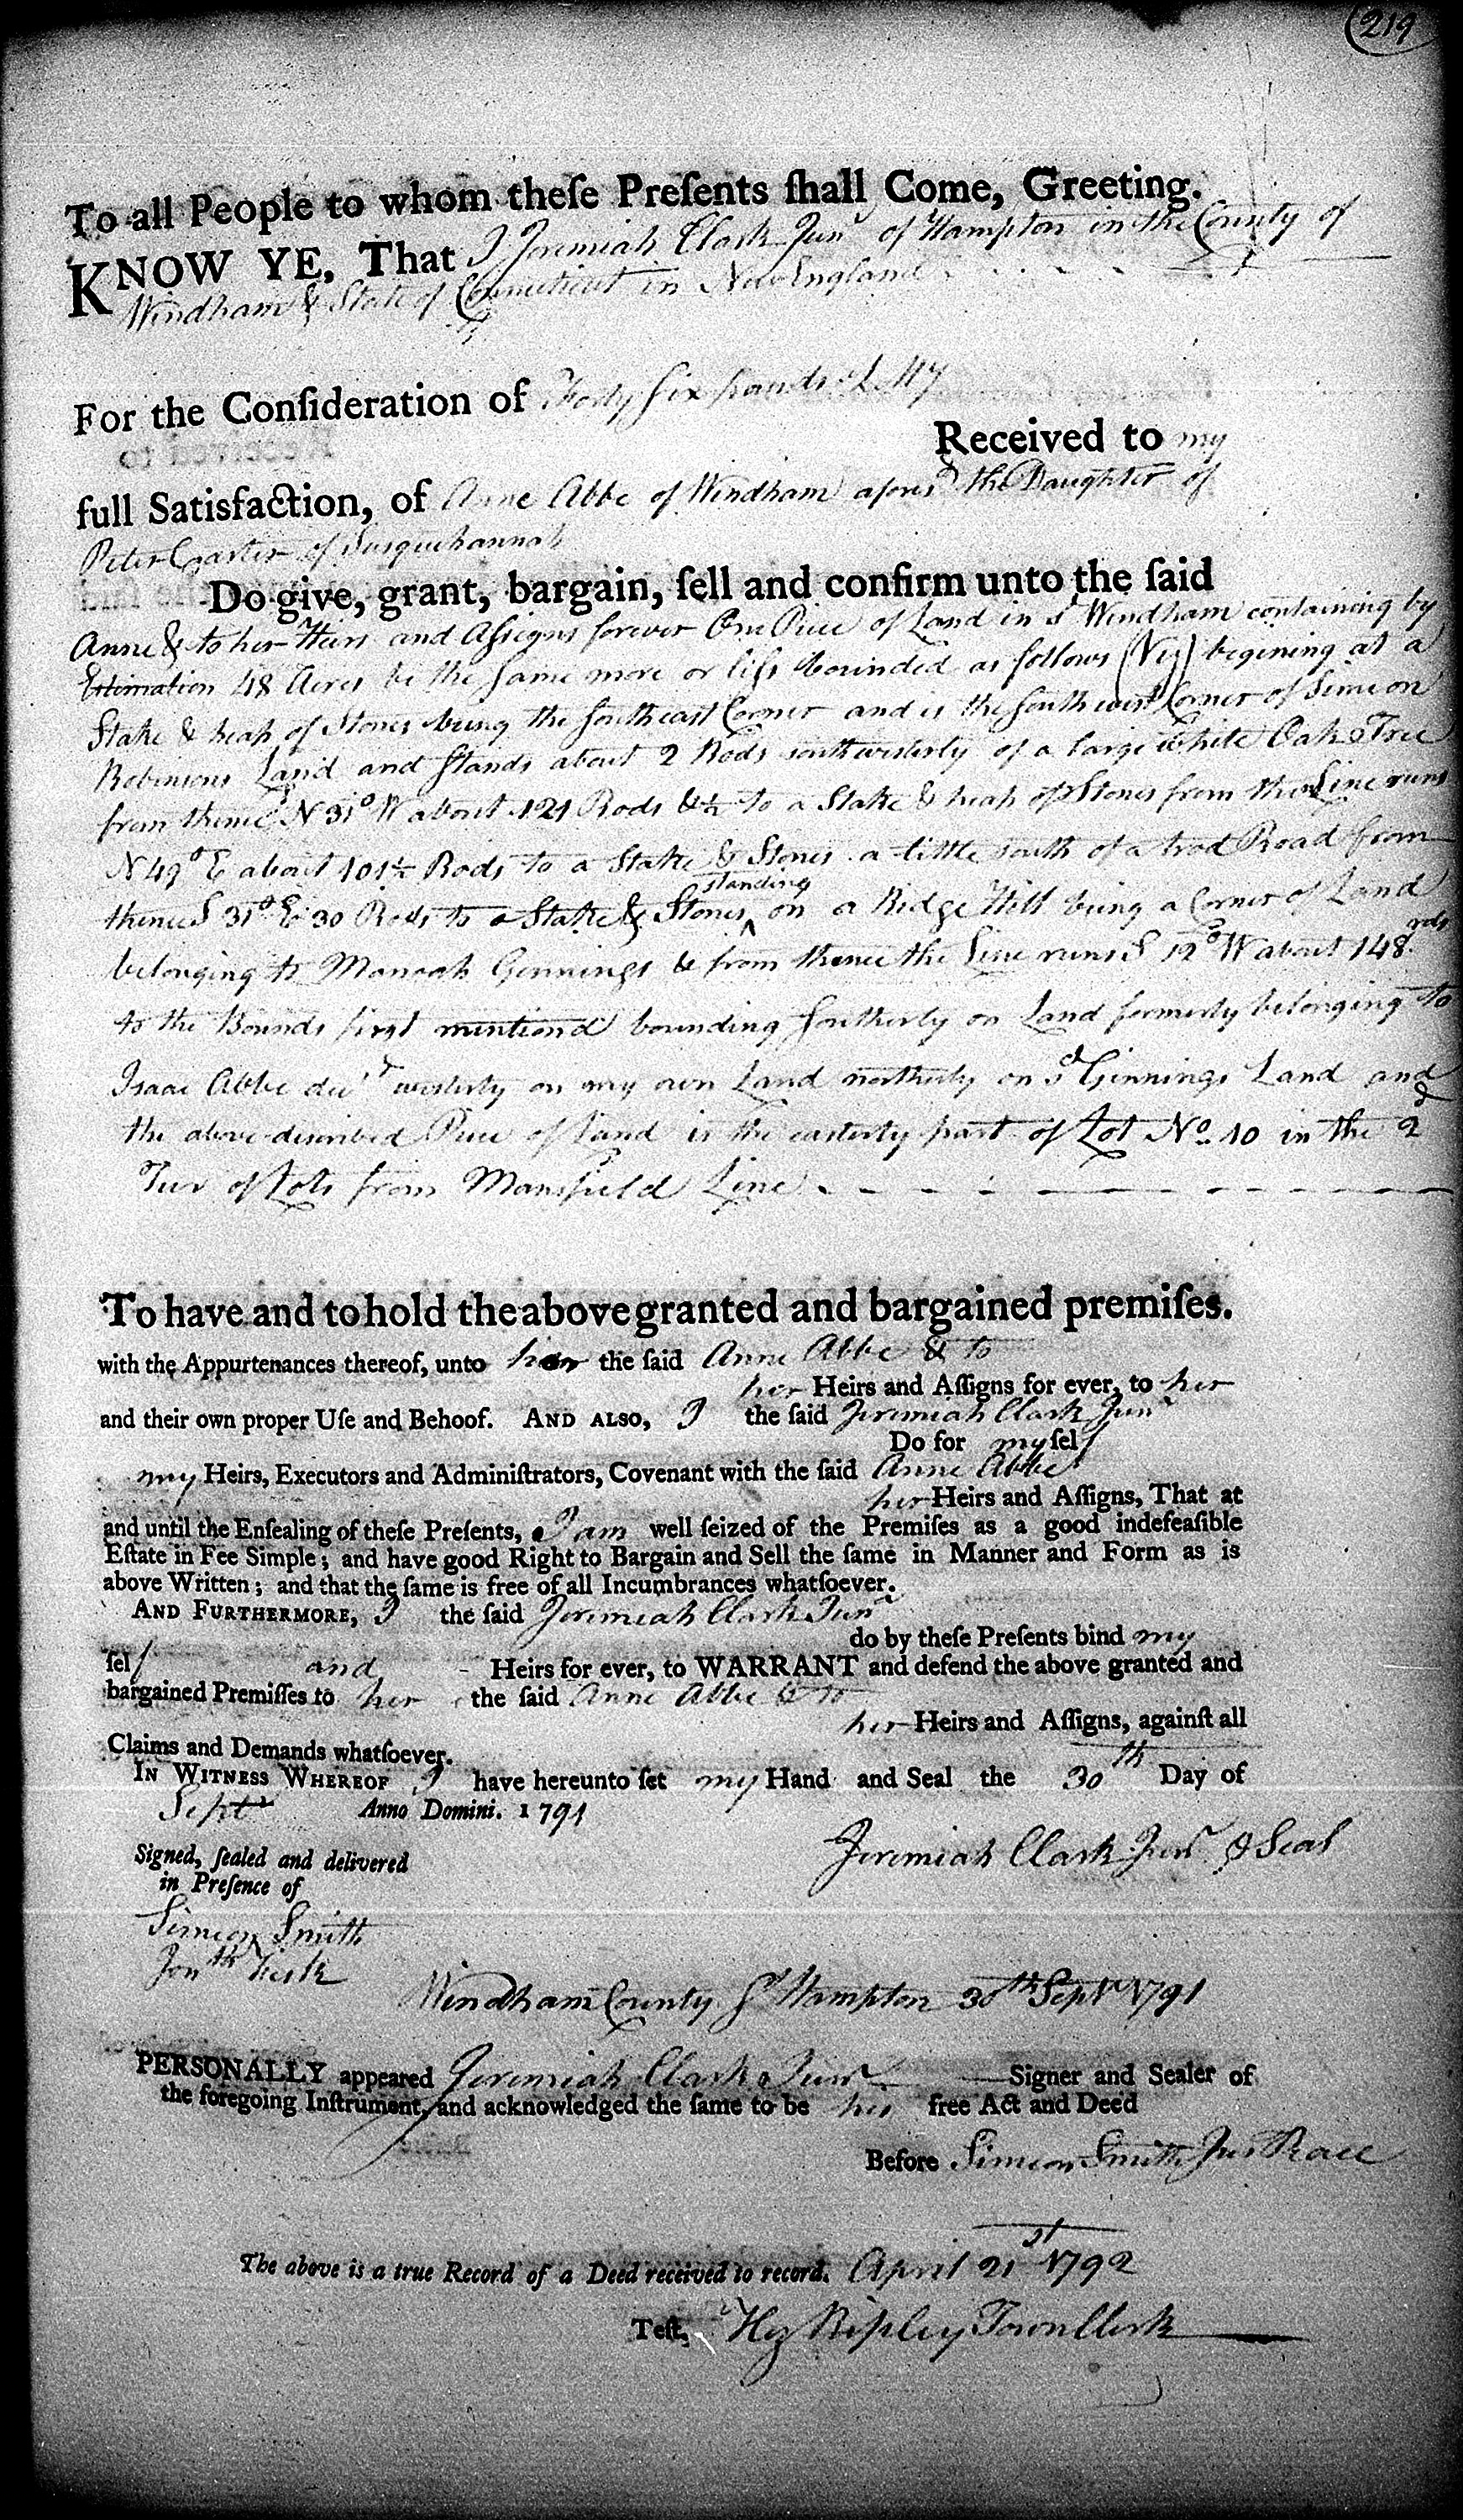 219
To all People to whom theſe Preſents ſhall Come, Greeting.
KNOW YE, That I Jeremiah Clark Junr of Hampton in the County of
Windham & State of Connecticut in New England
For the Conſideration of Forty Six pounds L My
Received to my
full Satisfaction, of Anne Abbe of Windham aforesd the Daughter of
Peter Carter of Susquehannah
Do give, grant, bargain, ſell and confirm unto the ſaid
Anne & to her Heirs and Aſsigns forever One Piece of Land in sd Windham containing by
Estimation 48 Acres be the Same more or leſs bounded as follows (Viz) begining at a
Stake & heap of Stones being the Southeast Corner and is the Southwest Corner of Simeon
Robinsons Land and Stands about 2 Rods southwesterly of a large white Oak Tree
from thence N 31° W about 121 Rods & ½ to a Stake & heap of Stones from thence Line runs
N 49° E about 101½ Rods to a Stake & Stones a little south of a trod Road from
thence S 31° E 30 Rods to a Stake & Stones standing on a Ridge Hill being a Corner of Land
belonging to Manoah Gennings & from thence the Line runs S 12° W about 148 rods
to the Bounds first mentiond bounding Southerly on Land formerly belonging to
Isaac Abbe decd westerly on my own Land northerly on sd Ginnings Land and
the above discribed Piece of Land is the easterly part of Lot No. 10 in the 2d
Teer of Lots from Mansfield Line
To have and to hold the above granted and bargained premiſes.
with the Appurtenances thereof, unto her the ſaid Anne Abbe & to
her Heirs and Aſſigns for ever, to her
and their own proper Uſe and Behoof. AND ALSO, I the ſaid Jeremiah Clark Junr
Do for my ſelf
my Heirs, Executors and Adminiſtrators, Covenant with the ſaid Anne Abbe
her Heirs and Aſſigns, That at
and until the Enſealing of theſe Preſents, I am well ſeized of the Premiſes as a good indefeaſible
Eſtate in Fee Simple; and have good Right to Bargain and Sell the ſame in Manner and Form as is
above Written; and that the ſame is free of all Incumbrances whatſoever.
AND FURTHERMORE, I the ſaid Jeremiah Clark Junr
do by theſe Preſents bind my
ſelf and Heirs for ever, to WARRANT and defend the above granted and
bargained Premiſſes to her the ſaid Anne Abbe & to
her Heirs and Aſſigns, againſt all
Claims and Demands whatſoever.
IN WITNESS WHEREOF I have hereunto ſet my Hand and Seal the 30th Day of
Septr Anno Domini. 1791
Jeremiah Clark Junr & Seal
Signed, ſealed and delivered
in Preſence of
Simeon Smith
Jonth Fisk
Windham County Ss Hampton 30th Septr 1791
PERSONALLY appeared Jeremiah Clark Junr Signer and Sealer of
the foregoing Inſtrument, and acknowledged the ſame to be his free Act and Deed
Before Simeon Smith Jus Peace
The above is a true Record of a Deed received to record. April 21st 1792
Teſt, Hez Ripley Town Clerk